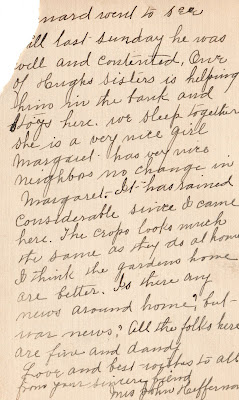 nard went to see
ill last Sunday he was
well and contented, One
of Hughs Sisters is helping
him in the bank and
stays here. we sleep together
she is a very nice girl
Margaret has very nice
neighbos no change in
Margaret. It has rained
considerable since I came
here. The crops looks much
the same as they do at home
I think the gardens home
are better. Is there any
news around home? but
war news? All the folks here
are fine and dandy
Love and best wishes to all
from your sincere friend
Mrs John Heffernan